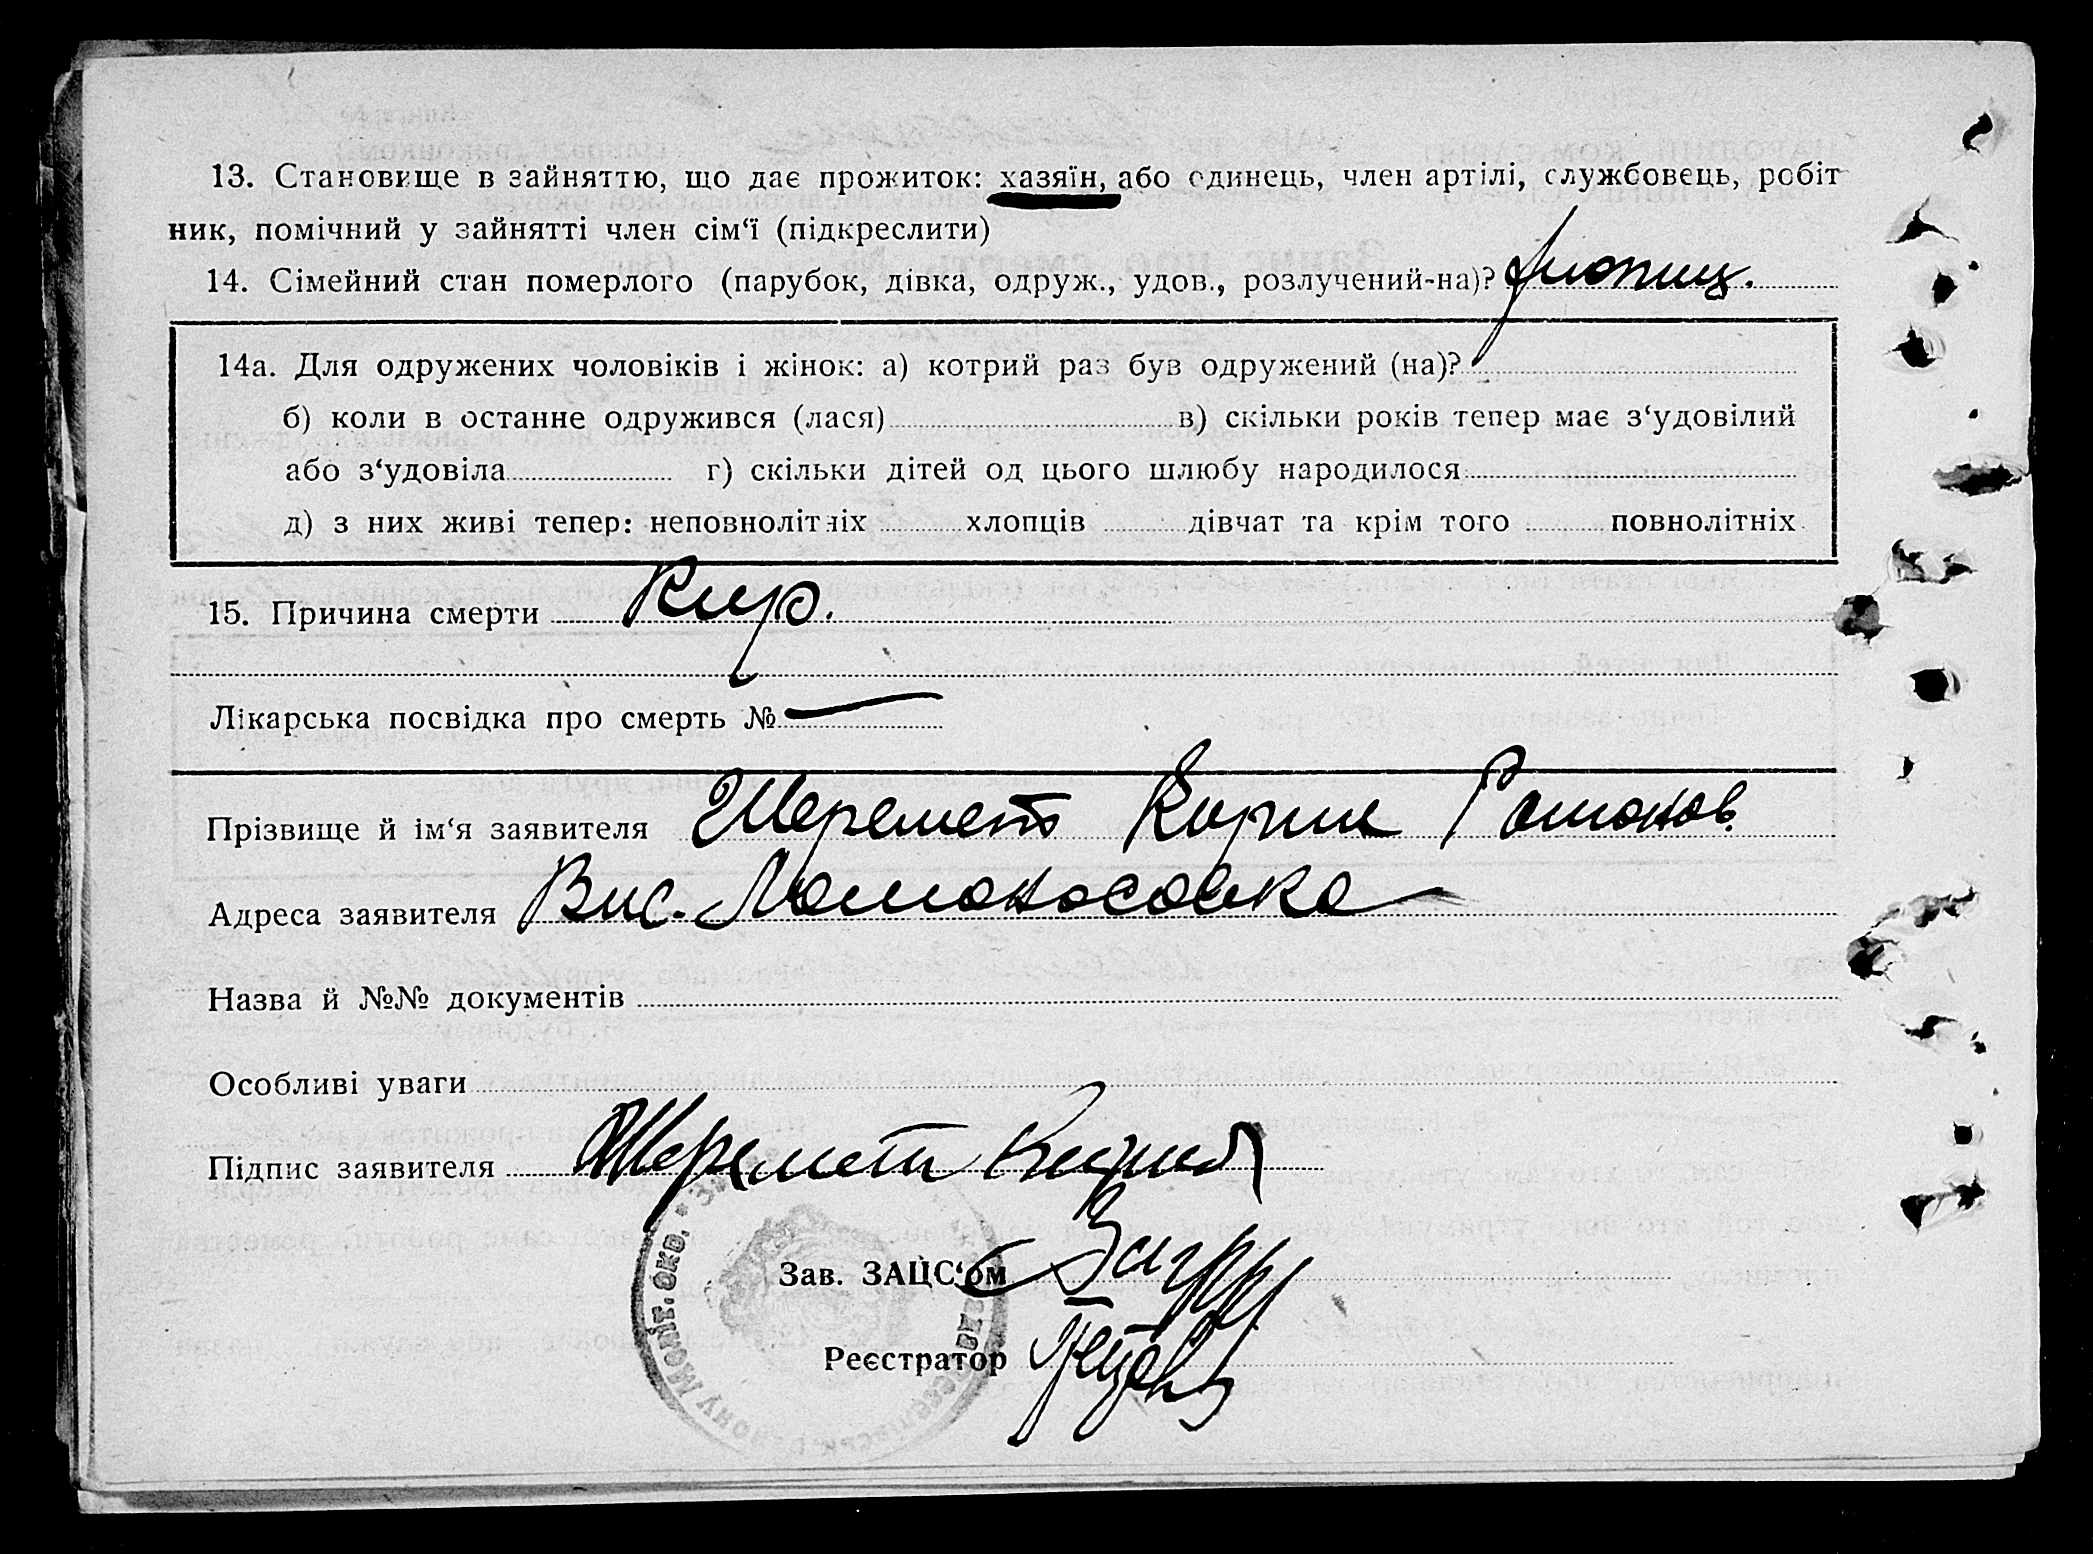 13. Становище в зайняттю, що дає прожиток: хазяїн, або одинець, член артілі, службовець, робіт
ник, помічний у зайнятті член сім‘ї (підкреслити)
14. Сімейний стан померлого (парубок, дівка, одруж., удов., розлучений-на)?
14а. Для одружених чоловіків і жінок: а) котрий раз був одружений (на)?
б) коли в останнє одружився (лася) в) скільки років тепер має з‘удовілий
або з‘удовіла г) скільки дітей од цього шлюбу народилося
д) з них живі тепер: неповнолітніх хлопців дівчат та крім того повнолітніх
15. Причина смерти Кир.
Лікарська посвідка про смерть № —
Прізвище й ім‘я заявителя Шеремет Кирил
Адреса заявителя Вис. Ломоносовка
Назва й №№ документів
Особливі уваги
Підпис заявителя Шеремет Кирил
Зав. ЗАЦС‘ом
Реєстратор